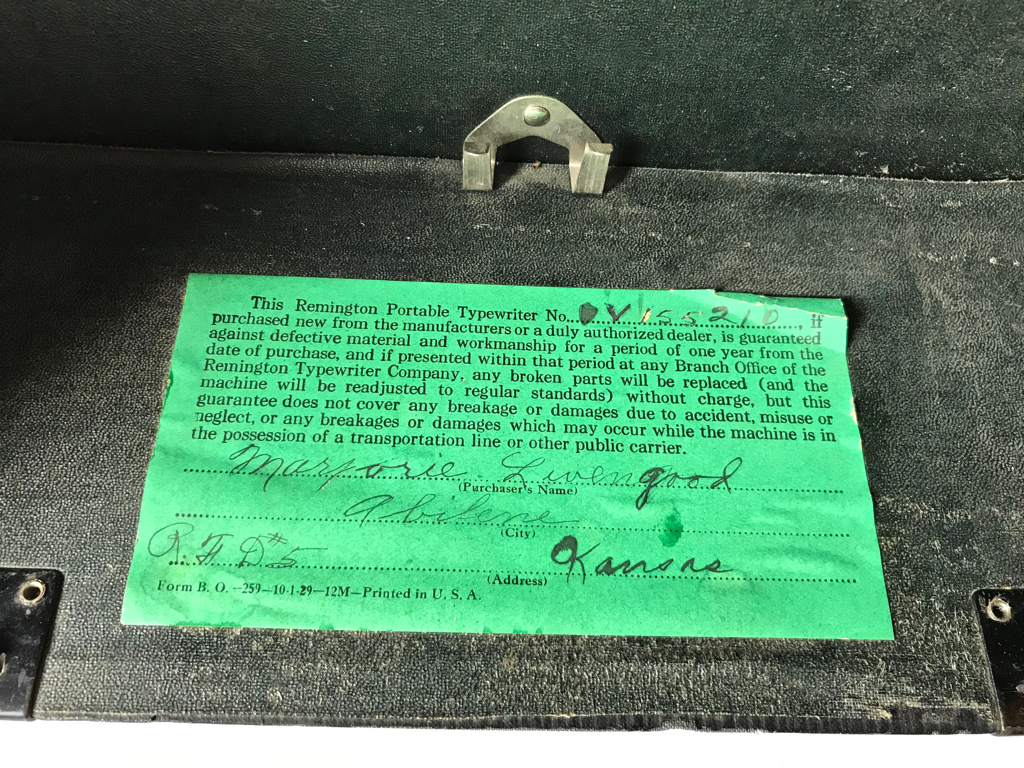 This Remington Portable Typewriter No... OV155210 ..., if
purchased new from the manufacturers or a duly authorized dealer, is guaranteed
against defective material and workmanship for a period of one year from the
date of purchase, and if presented within that period at any Branch Office of the
Remington Typewriter Company, any broken parts will be replaced (and the
machine will be readjusted to regular standards) without charge, but this
guarantee does not cover any breakage or damages due to accident, misuse or
neglect, or any breakages or damages which may occur while the machine is in
the possession of a transportation line or other public carrier.
Marjorie Livengood
(Purchaser's Name)
Abilene
(City)
R. F. D. #5 Kansas
(Address)
Form B. O. —259—10-1-29—12M—Printed in U. S. A.